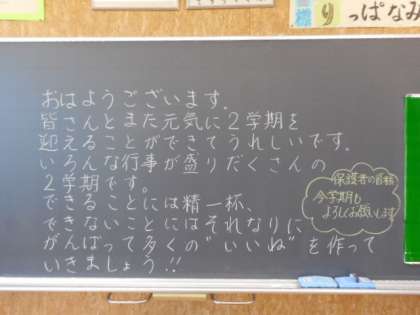 りっぱなみ
おはようございます.
皆さんとまた元気に2学期を
迎えることができてうれしいです.
いろんな行事が盛りだくさんの
2学期です。
できることには精一杯、
できないことにはそれなりに
がんばって多くの"いいね"を作って
いきましょう!!
保護者の皆様
今学期も
よろしくお願いします